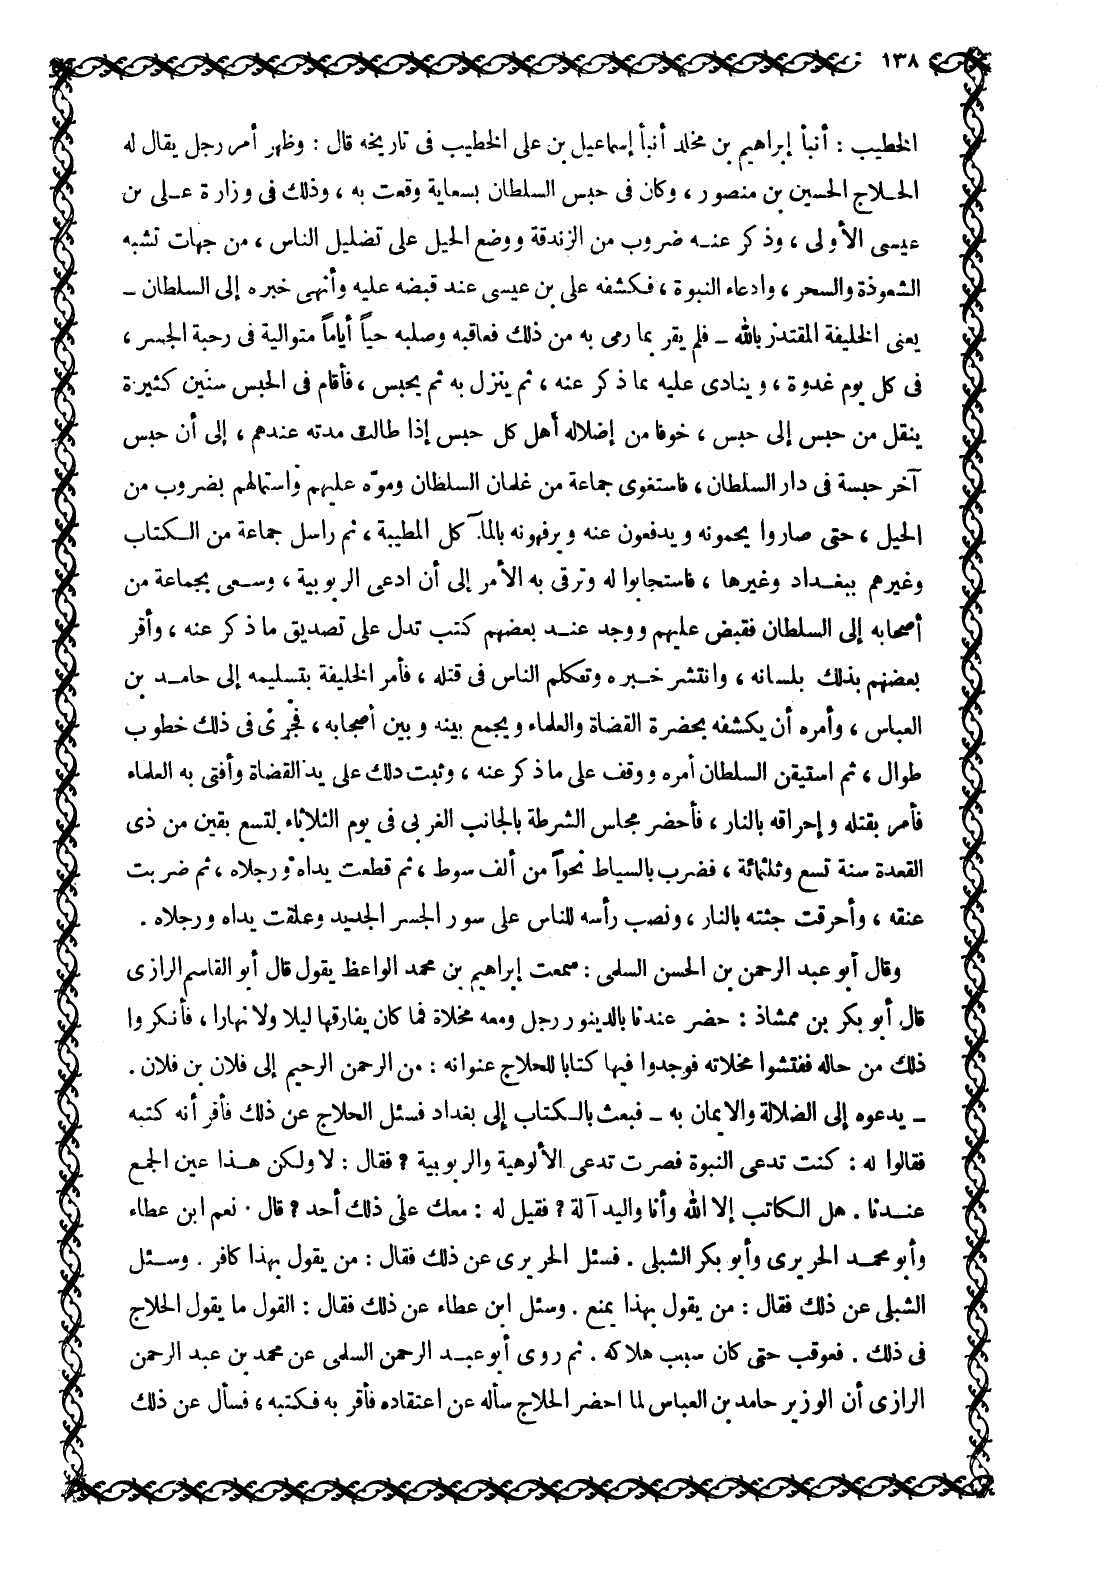 ١٣٨
الخطيب : أنبأ إبراهيم بن مخلد أنبأ إسماعيل بن على الخطيب فى تاريخه قال : وظهر أمر رجل يقال له
الحـلاج الحسين بن منصور ، وكان فى حبس السلطان بسعاية وقعت به ، وذلك فى وزارة عـلى بن
عيسى الأولى ، وذكر عنـه ضروب من الزندقة ووضع الحيل على تضليل الناس ، من جهات تشبه
الشعوذة والسحر ، وادعاء النبوة ، فـكشفه على بن عيسى عند قبضه عليه وأنهى خبره إلى السلطان ـ
يعنى الخليفة المقتدر بالله ـ فلم يقر بما رمى به من ذلك فعاقبه وصلبه حياً أياماً متوالية فى رحبة الجسر ،
فى كل يوم غدوة ، وينادى عليه بما ذكر عنه ، ثم ينزل به ثم يحبس ، فأقام فى الحبس سنين كثيرة
ينقل من حبس إلى حبس ، خوفا من إضلاله أهل كل حبس إذا طالت مدته عندهم ، إلى أن حبس
آخر حبسة فى دار السلطان ، فاستغوى جماعة من غلمان السلطان وموّه عليهم واستمالهم بضروب من
الحيل ، حتى صاروا يحمونه ويدفعون عنه ويرفهونه بالمآكل المطيبة ، ثم راسل جماعة من الـكتاب
وغيرهم ببغـداد وغيرها ، فاستجابوا له وترقى به الأمر إلى أن ادعى الربوبية ، وسـعى بجماعة من
أصحابه إلى السلطان فقبض عليهم ووجد عنـد بعضهم كتب تدل على تصديق ما ذكر عنه ، وأقر
بعضهم بذلك بلسانه ، وانتشر خـبره وتكلم الناس فى قتله ، فأمر الخليفة بتسليمه إلى حامـد بن
العباس ، وأمره أن يكشفه بحضرة القضاة والعلماء ويجمع بينه وبين أصحابه ، فجرى فى ذلك خطوب
طوال ، ثم استيقن السلطان أمره ووقف على ما ذكر عنه ، وثبت ذلك على يد القضاة وأفتى به العلماء
فأمر بقتله وإحراقه بالنار ، فأحضر مجلس الشرطة بالجانب الغربى فى يوم الثلاثاء لتسع بقين من ذى
القعدة سنة تسع وثلثمائة ، فضرب بالسياط نحواً من ألف سوط ، ثم قطعت يداه ورجلاه ، ثم ضربت
عنقه ، وأحرقت جثته بالنار ، ونصب رأسه للناس على سور الجسر الجديد وعلقت يداه ورجلاه .
وقال أبو عبد الرحمن بن الحسن السلمى : سمعت إبراهيم بن محمد الواعظ يقول قال أبو القاسم الرازى
قال أبو بكر بن ممشاذ : حضر عندنا بالدينور رجل ومعه مخلاة فما كان يفارقها ليلا ولا نهارا ، فأنكروا
ذلك من حاله ففتشوا مخلاته فوجدوا فيها كتابا للحلاج عنوانه : من الرحمن الرحيم إلى فلان بن فلان .
ـ يدعوه إلى الضلالة والايمان به ـ فبعث بالـكتاب إلى بغداد فسئل الحلاج عن ذلك فأقر أنه كتبه
فقالوا له : كنت تدعى النبوة فصرت تدعى الألوهية والربوبية ؟ فقال : لا ولكن هـذا عين الجمع
عنـدنا . هل الـكاتب إلا الله وأنا واليد آلة ؟ فقيل له : معك على ذلك أحد ؟ قال . نعم ابن عطاء
وأبو محمـد الحريرى وأبو بكر الشبلى . فسئل الحريرى عن ذلك فقال : من يقول بهذا كافر . وسـئل
الشبلى عن ذلك فقال : من يقول بهذا يمنع . وسئل ابن عطاء عن ذلك فقال : القول ما يقول الحلاج
فى ذلك . فعوقب حتى كان سبب هلاكه . ثم روى أبو عبـد الرحمن السلمى عن محمد بن عبد الرحمن
الرازى أن الوزير حامد بن العباس لما احضر الحلاج سأله عن اعتقاده فأقر به فـكتبه ، فسأل عن ذلك